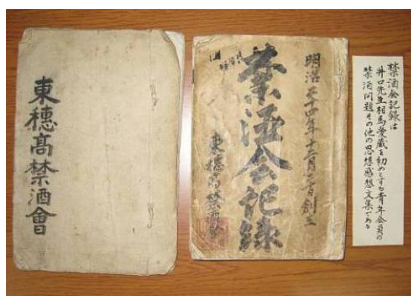 東穂髙禁酒會
明治二十四年十二月二日創立
禁酒会記録
東穂髙禁酒會
禁酒会記録は
井口先生相馬愛蔵を初めとする青年会員の
禁酒問題その他の思想感想文集である